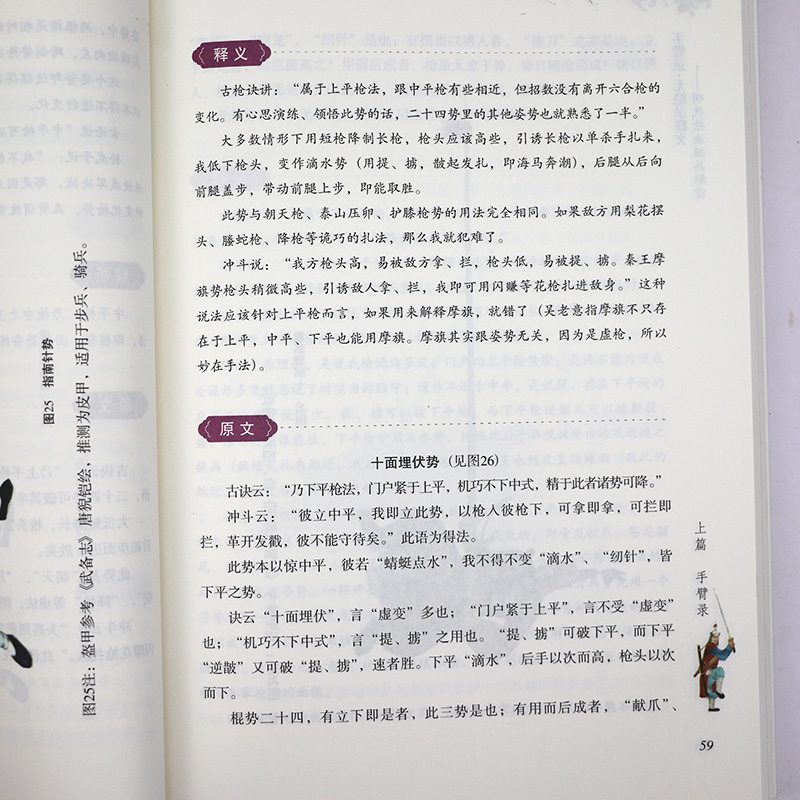 图25 指南针势
图25注：盔甲参考《武备志》唐猊铠绘，推测为皮甲，适用于步兵、骑兵。
释义
古枪诀讲：“属于上平枪法，跟中平枪有些相近，但招数没有离开六合枪的
变化。有心思演练、领悟此势的话，二十四势里的其他姿势也就熟悉了一半。”
大多数情形下用短枪降制长枪，枪头应该高些，引诱长枪以单杀手扎来，
我低下枪头，变作滴水势（用提、掳，骰起发扎，即海马奔潮），后腿从后向
前腿盖步，带动前腿上步，即能取胜。
此势与朝天枪、泰山压卵、护膝枪势的用法完全相同。如果敌方用梨花摆
头、螣蛇枪、降枪等诡巧的扎法，那么我就犯难了。
冲斗说：“我方枪头高，易被敌方拿、拦，枪头低，易被提、掳。秦王摩
旗势枪头稍微高些，引诱敌人拿、拦，我即可用闪赚等花枪扎进敌身。”这种
说法应该针对上平枪而言，如果用来解释摩旗，就错了（吴老意指摩旗不只存
在于上平，中平、下平也能用摩旗。摩旗其实跟姿势无关，因为是虚枪，所以
妙在手法）。
原文
十面埋伏势（见图26）
古诀云：“乃下平枪法，门户紧于上平，机巧不下中式，精于此者诸势可降。”
冲斗云：“彼立中平，我即立此势，以枪入彼枪下，可拿即拿，可拦即
拦，革开发戳，彼不能守待矣。”此语为得法。
此势本以惊中平，彼若“蜻蜓点水”，我不得不变“滴水”、“纫针”，皆
下平之势。
诀云“十面埋伏”，言“虚变”多也；“门户紧于上平”，言不受“虚变”
也；“机巧不下中式”，言“提、掳”之用也。“提、掳”可破下平，而下平
“逆骰”又可破“提、掳”，速者胜。下平“滴水”，后手以次而高，枪头以次
而下。
棍势二十四，有立下即是者，此三势是也；有用而后成者，“献爪”、
上篇 手臂录
59